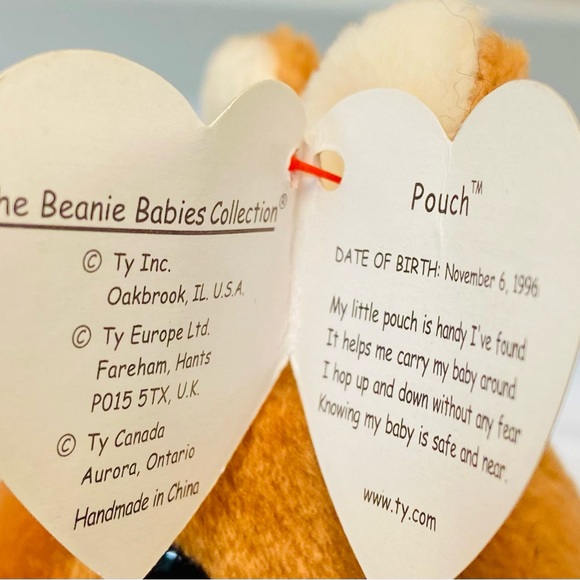 he Beanie Babies Collection®
© Ty Inc.
Oakbrook, IL. U.S.A.
© Ty Europe Ltd.
Fareham, Hants
PO15 5TX, U.K.
© Ty Canada
Aurora, Ontario
Handmade in China
Pouch™
DATE OF BIRTH: November 6, 1996
My little pouch is handy I've found
It helps me carry my baby around
I hop up and down without any fear
Knowing my baby is safe and near.
www.ty.com